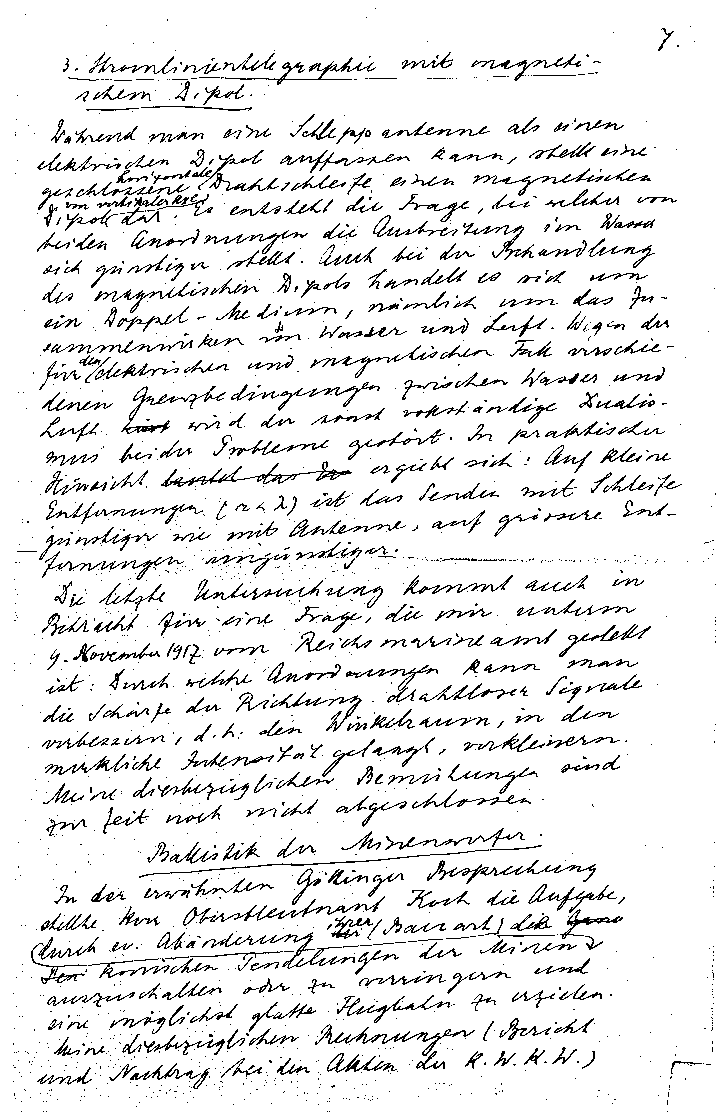 7.
3. Stromlinientelegraphie mit magneti-
schem Dipol.
Während man eine Schleppantenne als einen
elektrischen Dipol auffassen kann, stellt eine
horizontale
geschlossene Drahtschleife einen magnetischen
von vertikaler Axe
Dipol dar. Es entsteht die Frage, bei welcher von
beiden Anordnungen die Ausbreitung im Wasser
sich günstiger stellt. Auch bei der Behandlung
des magnetischen Dipols handelt es sich um
ein Doppel-Medium, nämlich um das Zu-
sammenwirken von Wasser und Luft. Wegen der
für den elektrischen und magnetischen Fall verschie-
denen Grenzbedingungen zwischen Wasser und
Luft wird der sonst vollständige Dualis-
mus beider Probleme gestört. In praktischer
Hinsicht lautet das ergiebt sich: Auf kleine
Entfernungen (r<λ) ist das Senden mit Schleife
günstiger wie mit Antenne, auf grössere Ent-
fernungen ungünstiger.
Die letzte Untersuchung kommt auch in
Betracht für eine Frage, die mir unterm
9. November 1917 vom Reichsmarineamt gestellt
ist: Durch welche Anordnungen kann man
die Schärfe der Richtung drahtloser Signale
verbessern, d.h. den Winkelraum, in den
merkliche Intensität gelangt, verkleinern.
Meine diesbezüglichen Bemühungen sind
zur Zeit noch nicht abgeschlossen.
Ballistik der Minenwerfer.
In der erwähnten Göttinger Besprechung
stellte Herr Oberstleutnant Koch die Aufgabe,
durch ev. Abänderung ihrer Bauart die
konischen Pendelungen der Minen
auszuschalten oder zu verringern und
eine möglichst glatte Flugbahn zu erzielen.
Meine diesbezüglichen Rechnungen (Bericht
und Nachtrag bei den Akten der K.W.K.W.)